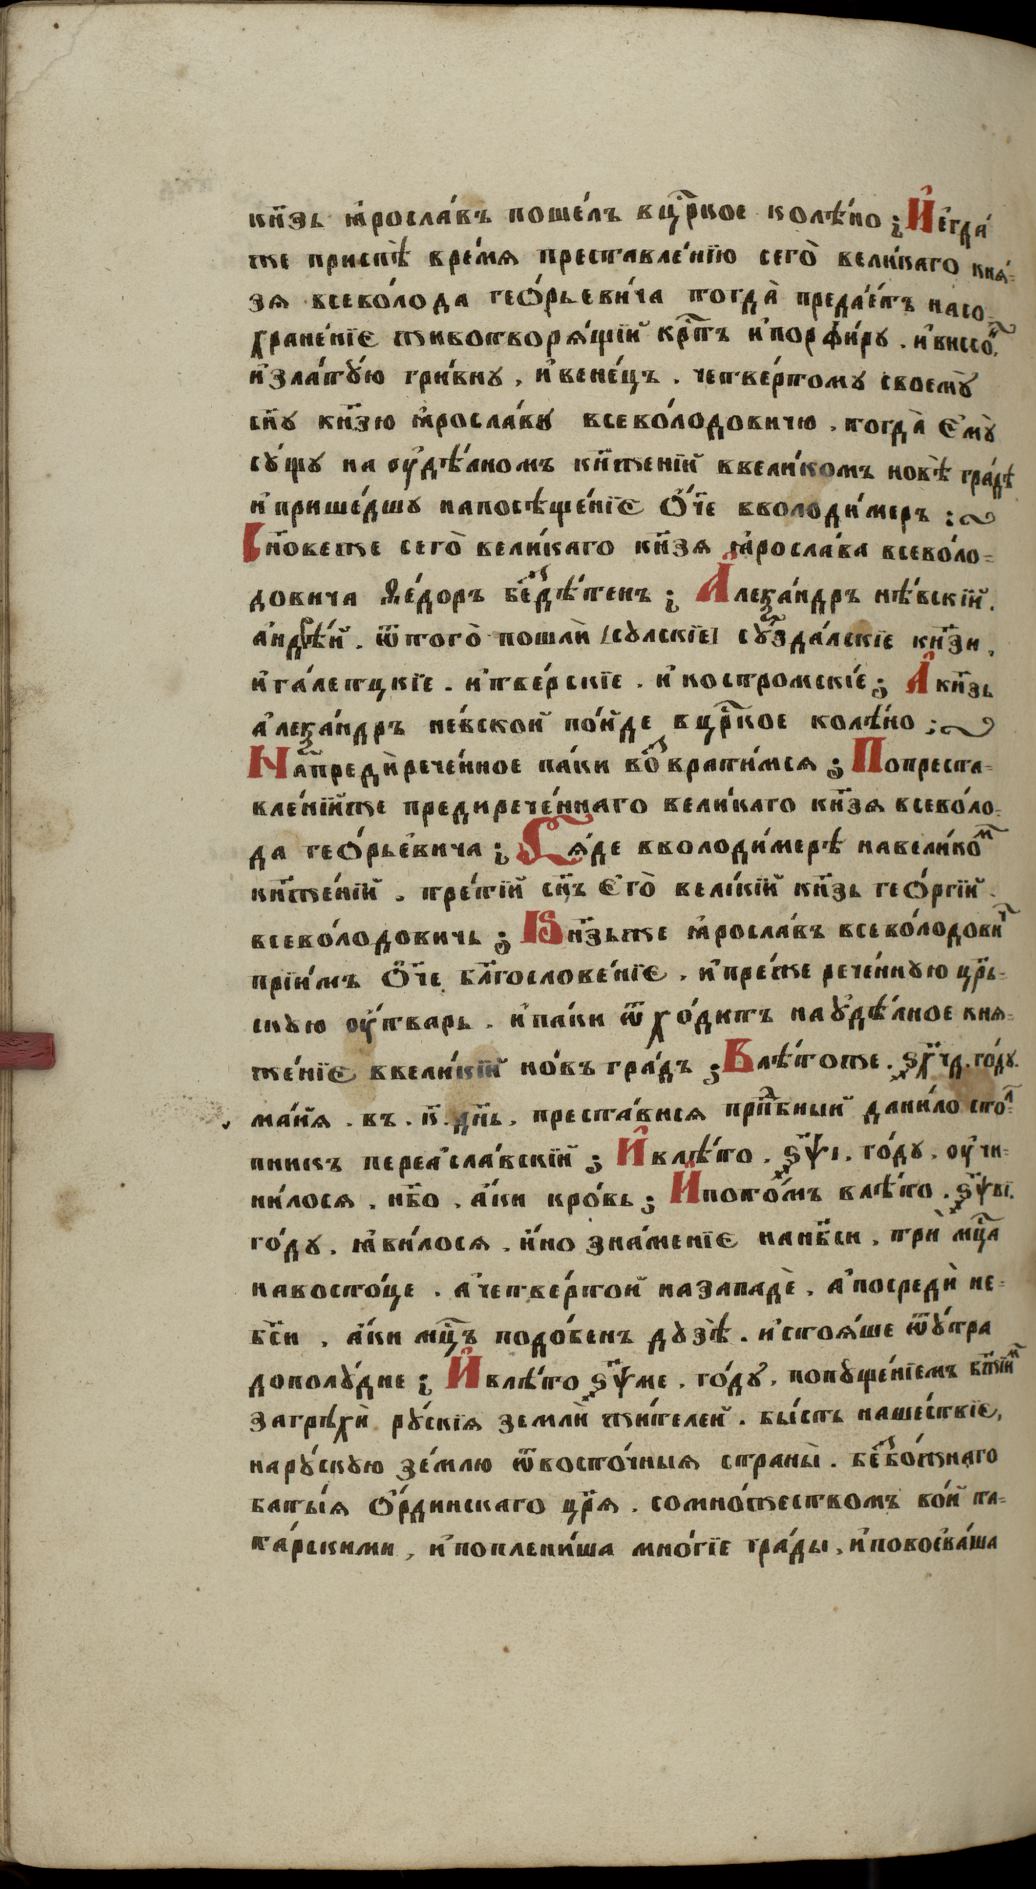 кн҃зь ꙗ҆росла́въ поше́лъ вцр҃кое колѣ́но ; И҆егда́
же приспѣ̀ вре́мя преставле́нїю сего̀ вели́каго кня́-
зя всево́лода гео́рьевича тогда̀ предае́тъ насо-
хране́нїе животворя́щїй крт҃ъ и҆порфи́ру . и҆виссо́н ,
и҆злату́ю гри́вну , и҆вене́цъ . четве́ртому своему̀
сн҃у кн҃зю ꙗ҆росла́ву всево́лодовичю . тогда̀ ему̀
су́щу на оу҆дѣ́лномъ кн҃женїй ввели́комъ новѣ̀ гра́дѣ
и҆прише́дшу напосѣще́нїе О҆ч҃е вволоди́меръ :~
Сн҃овеже сего̀ вели́каго кн҃зя ꙗ҆росла́ва всево́ло-
довича Ѳе́доръ безⸯдѣ́тенъ ; А҆леѯа́ндръ нѣ́вскїй .
андрѣ́й . ѿтого̀ пошлѝ [сулскїе] су́здалскїе кн҃зи ,
и҆га́летцкїе . и҆тве́рскїе . и҆ костромскі́е ; А҆ кн҃зь
а҆леѯа́ндръ не́вской по́йде в цр҃кое колѣ́но ;~
Напредѝрече́нное па́ки возⸯврати́мся ; Попреста-
вле́нїйже предирече́ннаго вели́каго кн҃зя всево́ло-
да гео́рьевича ; Ся́де вволоди́мерѣ навелико́м
кн҃же́нїй . тре́тїй сн҃ъ его̀ вели́кїй кн҃зь гео́ргїй .
всево́лодовичь ; Кн҃зьже ꙗ҆росла́въ всево́лодович
прїи́мъ О҆ч҃е бл҃гослове́нїе . и҆пре́же рече́нную цр҃ь-
скую оу҆́тварь . и҆па́ки ѿхо́дитъ науд҆ѣ́лное кня-
же́нїе ввели́кїй но́въ гра́дъ ; Влѣ́тоже . ҂ѕѱ҃чд . го́ду .
ма́йя . въ . к҃д . дн҃ь . преста́вися прп҃бный дани́ло сто́л-
пникъ переасла́вскїй ; И҆влѣ́то . ҂ѕѱ҃і . го́ду . оу҆чи-
ни́лося . нб҃о . а҆́ки кро́вь ; И҆пото́мъ влѣ́то . ҂ѕѱ҃ві .
го́ду . ꙗ҆ви́лося . и҆́но зна́менїе нанб҃си . трѝ мц҃а
навосто́це . а҆четве́ртой назападѐ , а҆посредѝ не-
бс҃и , а҆́ки мц҃ъ подо́бенъ дузѣ̀ . и҆стоя́ше ѿу́тра
дополу́дне ; И҆влѣ́то ҂ѕѱ҃ме . го́ду . попуще́нїемъ бж҃їим
загрѣхѝ ру́скїя землѝ жи́телей . бы́сть наше́ствїе ,
нару́скую зе́млю ѿвосто́чныя страны̀ . безⸯбо́жнаго
баты́я О҆рди́нскаго цр҃я . сомно́жествомъ во́й та-
та́рскими , и҆поплени́ша мно́гїе гра́ды , и҆повоева́ша